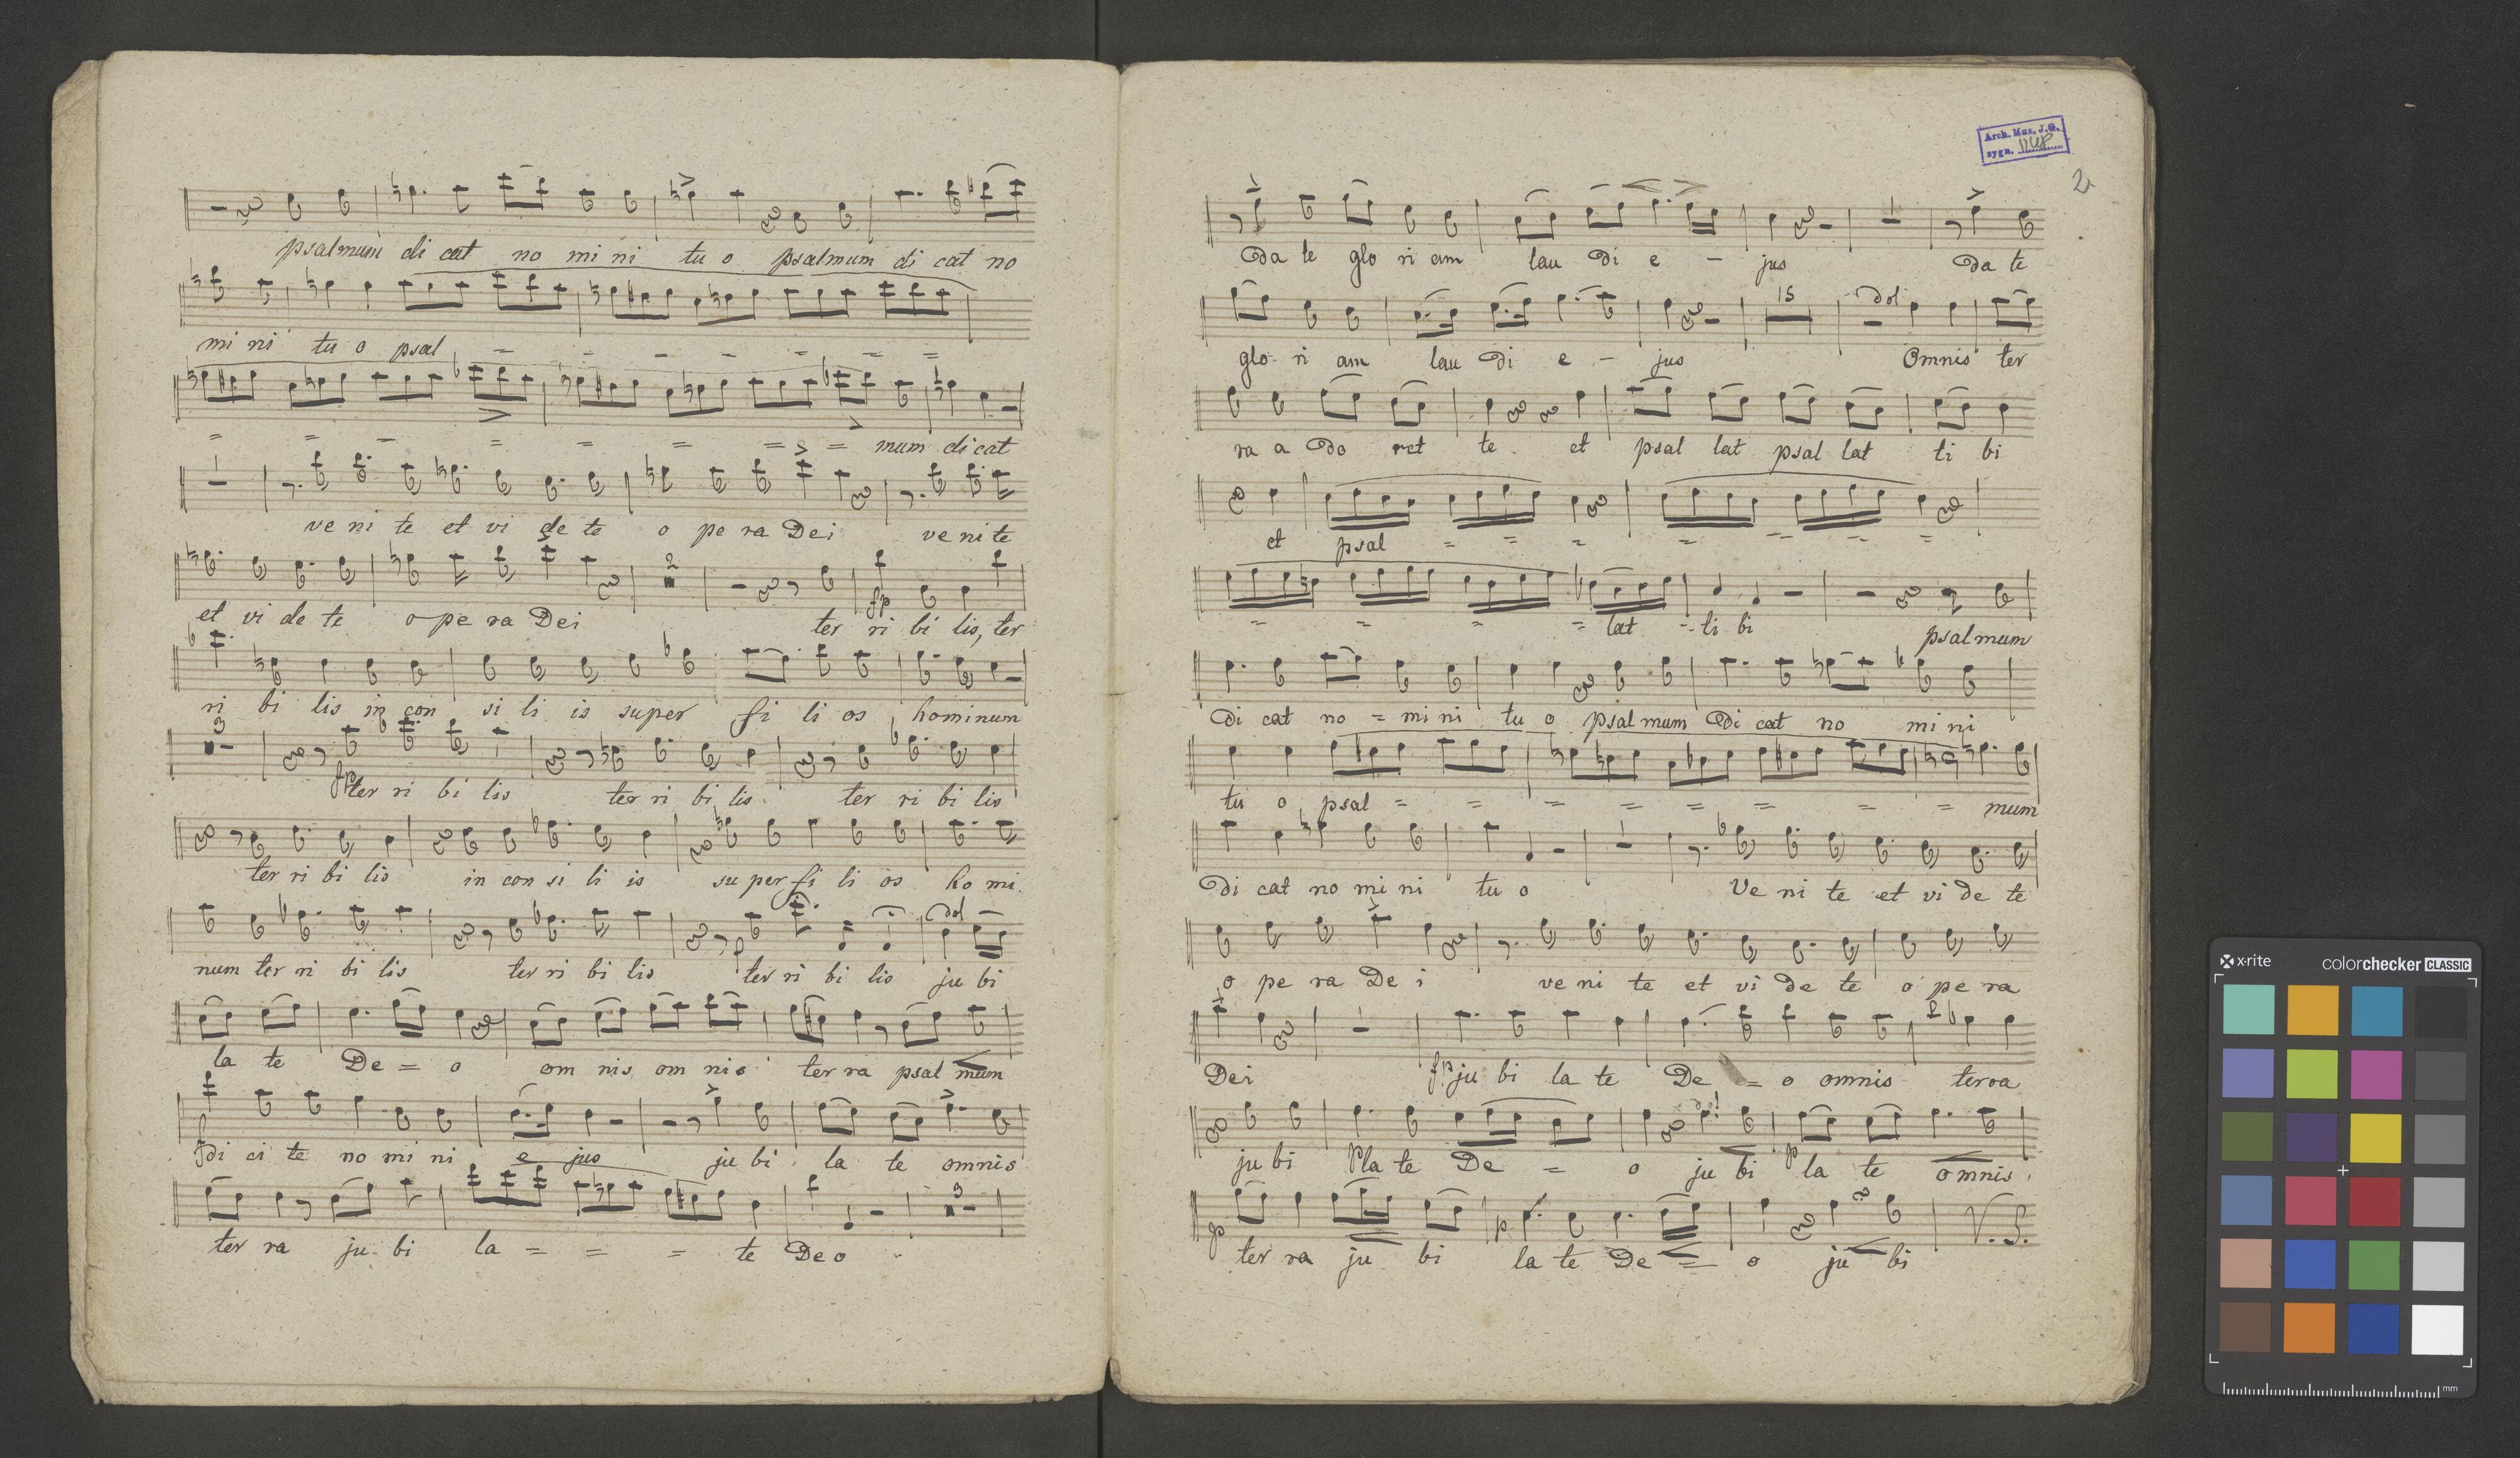 psalmum di cat no mi ni tu o psalmum di cat no
mi ni tu o psal
mum di cat
ve ni te et vi de te o pe ra Dei ve ni te
et vi de te o pe ra Dei ter ri bi lis, ter
2
fp
ri bi lis in con si li is super fi li os hominum
3
fp ter ri bi lis ter ri bi lis ter ri bi lis
ter ri bi lis in con si li is su per fi li os ho mi
dol
num ter ri bi lis ter ri bi lis ter ri bi lis ju bi
p
la te De = o om nis om nis ter ra psal mum
f di ci te no mi ni e jus ju bi la te omnis
3
ter ra ju bi la = = = te De o
Arch. Muz. J.G.
sygn.
2
Da te glo ri am lau di e - jus Da te
15 dol
glo ri am lau di e - jus Omnis ter
ra a do ret te et psal lat psal lat ti bi
et psal
= = = = lat - ti bi psal mum
di cat no = mi ni tu o psal mum Di cat no mi ni
tu o psal = = = = = = = = mum
Di cat no mi ni tu o Ve ni te et vi de te
o pe ra De i ve ni te et vi de te o pe ra
Dei fp ju bi la te De = o omnis terra
ju bi p la te De = o ju bi p la te omnis
V. S.
p ter ra ju bi p la te De = o ju bi